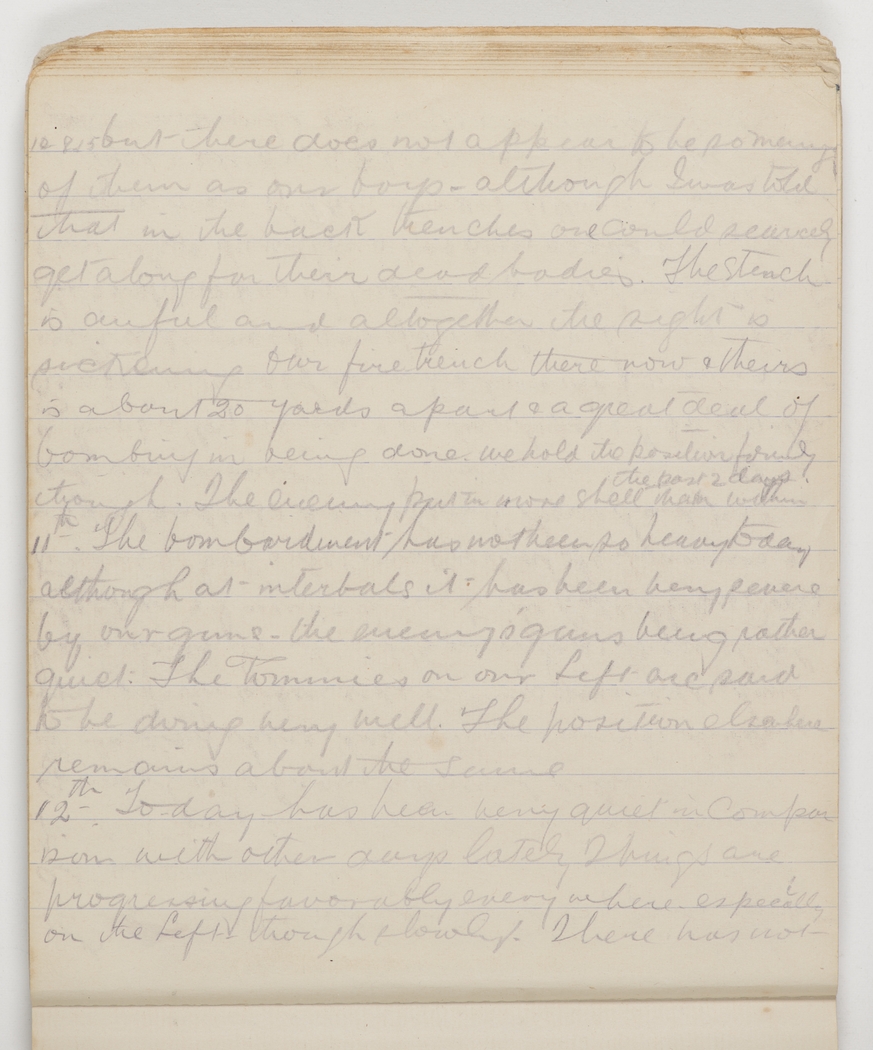 10.8.15 but there does not appear to be so many
of them as our boys - although I was told
that in the back trenches one could scarcely
get along for their dead bodies. The stench
is awful and altogether the sight is
sickening Our fire trench there now & theirs
is about 20 yards apart & a great deal of
bombing in being done. we hold the position firmly
the past 2 days.
though. The enemy put in more shell than within
11th. The bombardment has not been so heavy today
although at intervals it has been very severe
by our guns - the enemy's guns being rather
quiet. The Tommies on our left are said
to be doing very well. The position elsewhere
remains about the same
12th. To-day has been very quiet in Compar
ison with other days lately Things are
progressing favorably everywhere. especially
on the Left - though slowly. There has not